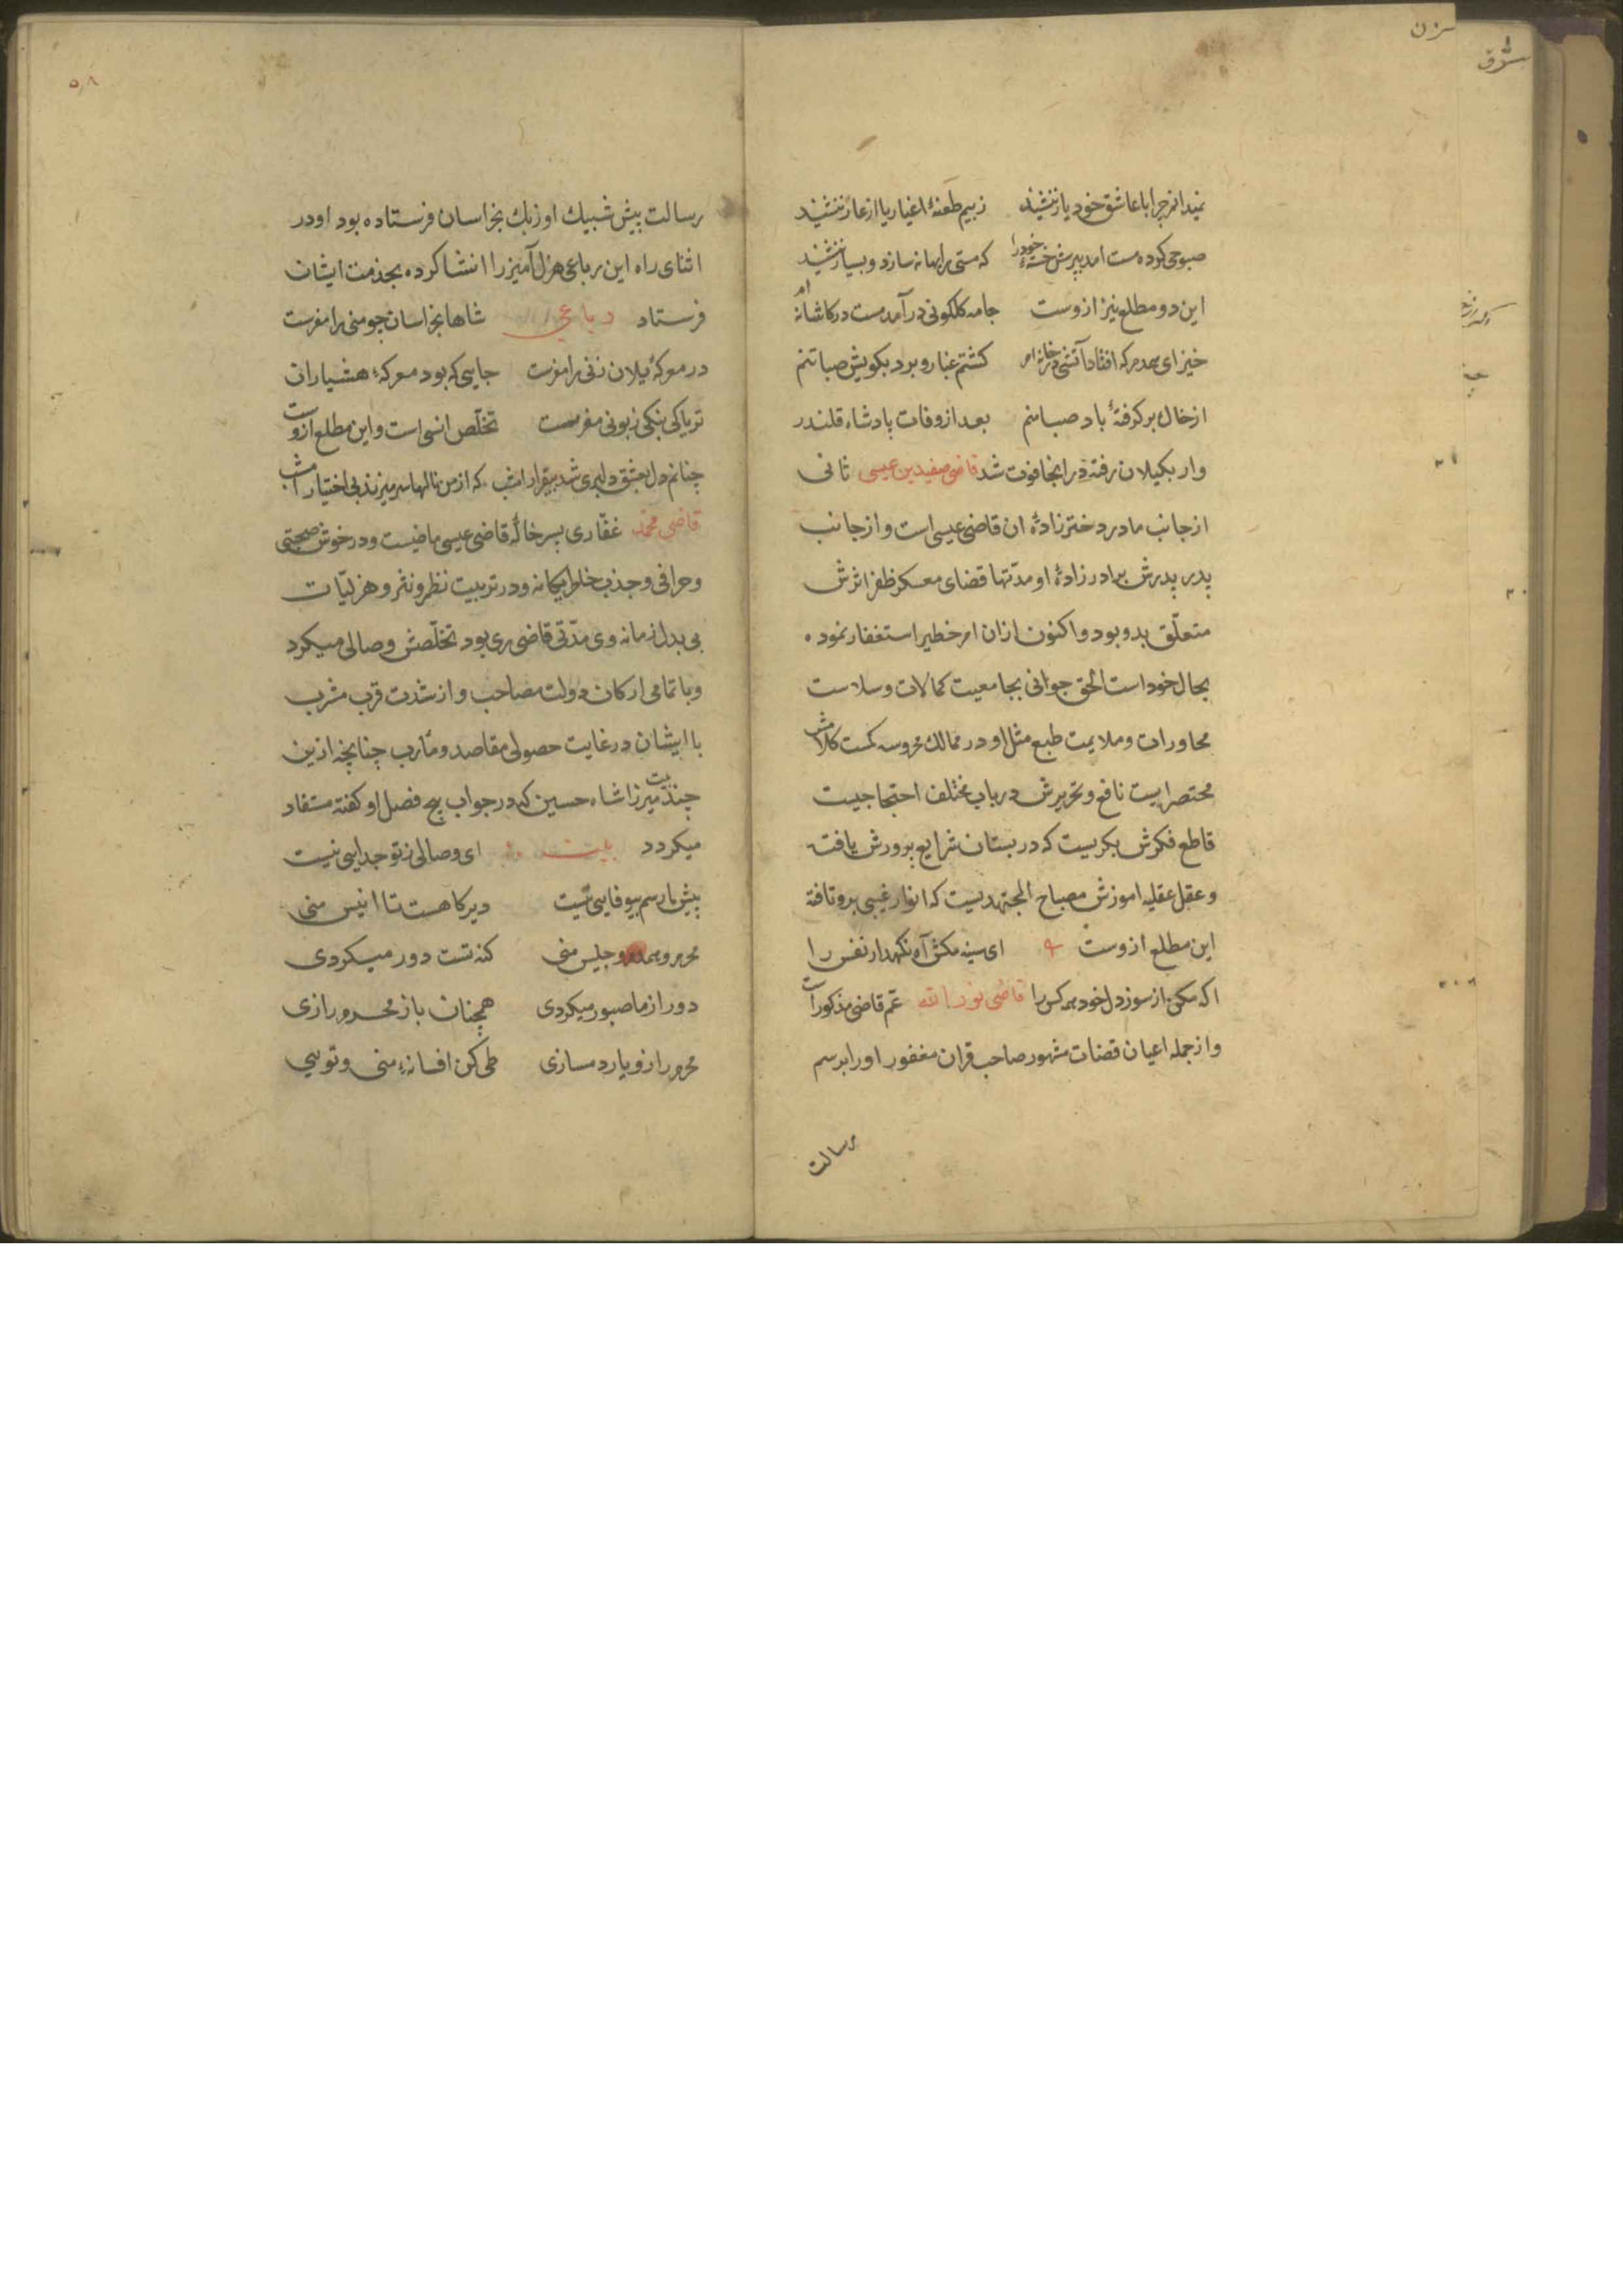 نمیدانم چرا با عاشق خود یار ننشیند زبیم طعنهٔ اغیار یا از عار ننشیند
صبوحی کرده مست امد بپرسش خستهٔ خودرا که مستی را بهانه سازد و بسیار ننشیند
این دو مطلع نیز ازوست جامه کلکونی درآمد مست در کاشانه ام
خیز ای همدم که افتاد آتشی در خانه ام کشتم غبار و برد بکویش صبا تنم
از خاک برکرفتهٔ باد صبا منم بعد از وفات پادشاه قلندر
وار بکیلان رفته در انجا فوت شد قاضی صفی‌بن عیسی ثانی
از جانب مادر دخترزادهٔ ان قاضی عیسی است و از جانب
پدر پدرش برادرزادهٔ او مدّتها قضای معسکر ظفر اثرش
متعلّق بدو بود و اکنون ازان امر خطیر استغفار نموده
بحال خود است الحق جوانی بجامعیت کمالات و سلاست
محاورات و ملایمت طبع مثل او در ممالک محروسه کمست کلامش
مختصرایست نافع و تحریرش در باب مختلف احتجاجیست
قاطع فکرش بکریست که در بستان شرایع پرورش یافته
و عقل عقلیه اموزش مصباح المجتهدیست که انوار غیبی برو تافته
این مطلع ازوست ای سینه مکش آه نکهدار نفس را
اکه مکن از سوز دل خود همه کس را قاضی نورالله عمّ قاضی مذکور است
و از جمله اعیان قضات مشهور صاحب قران مغفور اورا برسم
رسالت
رسالت پیش شیبک اوزبک بخراسان فرستاده بود او در
اثنای راه این رباعی هزل آمیز را انشا کرده بخدمت ایشان
فرستاد رباعی شاها بخراسان چو منی را مفرست
در معرکهٔ یلان زنی را مفرست جایی که بود معرکهٔ هشیاران
تریاکی بنکی زبونی مفرست تخلّص انسی است و این مطلع ازوست
چنانم دل بعشق دلبری شد بیقرار امشب که از من نالها سر میزند بی‌اختیار امشب
قاضی محمّد غفّاری پسر خالهٔ قاضی عیسی ماضیست و در خوش صحبتی
و حرافی و جذب خاطر یکانه و در تربیت نظم و نثر و هزلیّات
بی بدل زمانه وی مدّتی قاضی ری بود تخلّصش وصالی میکرد
و با تمامی ارکان دولت مصاحب و از شدت قرب مشرب
با ایشان در غایت حصولی مقاصد و مآرب چنانچه ازین
چند بیت میرزا شاه حسین که در جواب هیج فصل او کفته مستفاد
میکردد بیت ای وصالی ز تو جدایی نیست
پیش ما رسم بیوفایی نیست دیرکاهست تا انیس منی
محرم و همدم و جلیس منی کنه تست دور میکردی
دور از ما صبور میکردی همچنان باز محرم رازی
محرم راز و یار دمسازی طی کن افسانهٔ منی و تویی